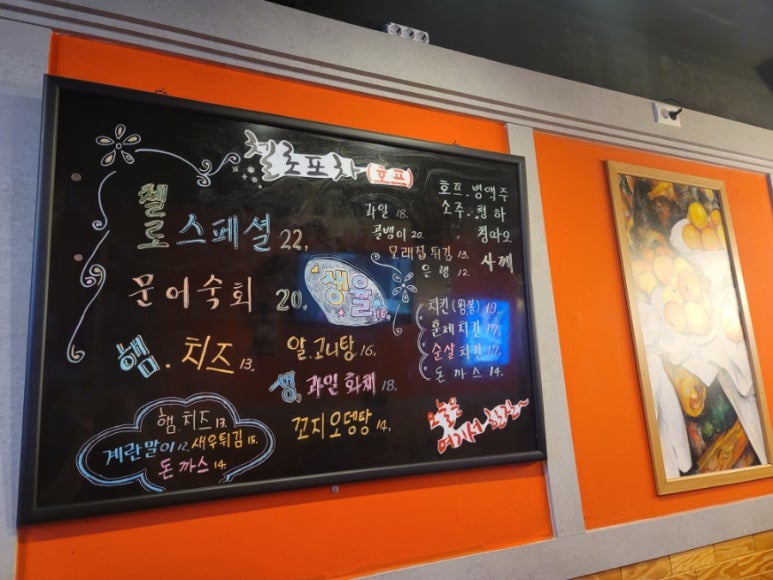 첼로포차(호프)
첼
로스페셜 22,
문어숙회 20,
햄.치즈 13.
햄.치즈 13.
계란말이 12. 새우튀김 15.
돈까스 14.
과일 18.
골뱅이 20.
모래집튀김 13.
은행 12.
생율 15,
알.고니탕 16,
생,과일화채 18.
꼬지오뎅탕 14,
호프.병맥주
소주.청하
칭따오
사케
치킨(왕봉) 19.
훈제치킨 17.
순살치킨 17.
돈까스 14.
오늘은
여기서 한잔~